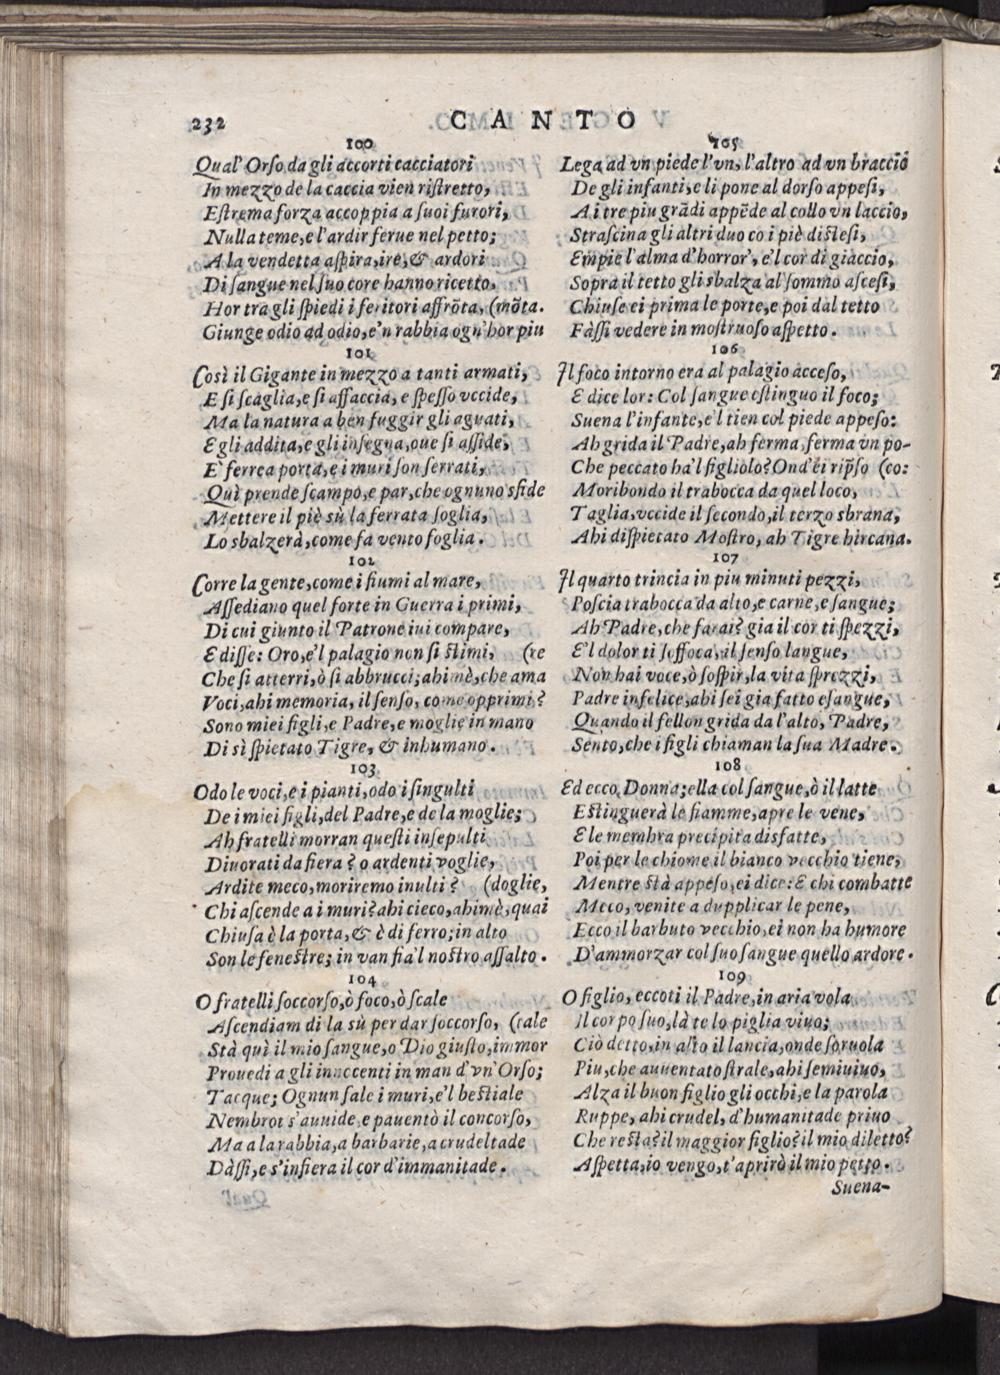 232 CANTO
100
Qual' Orſo da gli accorti cacciatori
In mezzo de la caccia vien riſtretto,
Eſtrema forza accoppia a ſuoi furori,
Nulla teme, e l'ardir ferue nel petto;
A la vendetta aſpira, ire, & ardori
Di ſangue nel ſuo core hanno ricetto,
Hor tra gli ſpiedi i feritori affrōta, (mōta.
Giunge odio ad odio, e'n rabbia ogn'hor piu
101
Così il Gigante in mezzo a tanti armati,
E ſi ſcaglia, e ſi affaccia, e ſpeſſo vccide,
Ma la natura a ben fuggir gli aguati,
E gli addita, e gli inſegna, oue ſi aſſide,
E' ferrea porta, e i muri ſon ſerrati,
Quì prende ſcampo, e par, che ognuno sfide
Mettere il piè sù la ferrata ſoglia,
Lo sbalzerà, come fa vento foglia.
102
Corre la gente, come i fiumi al mare,
Aſſediano quel forte in Guerra i primi,
Di cui giunto il Patrone iui compare,
E diſſe: Oro, e'l palagio non ſi ſtimi, (re
Che ſi atterri, ò ſi abbrucci; ahimè, che ama
Voci, ahi memoria, il ſenſo, come opprimi?
Sono miei figli, e Padre, e moglie in mano
Di sì ſpietato Tigre, & inhumano.
103
Odo le voci, e i pianti, odo i ſingulti
De i miei figli, del Padre, e de la moglie;
Ah fratelli morran queſti inſepulti
Diuorati da fiera? o ardenti voglie,
Ardite meco, moriremo inulti? (doglie,
Chi aſcende a i muri? ahi cieco, ahimè, quai
Chiuſa è la porta, & è di ferro; in alto
Son le feneſtre; in van fia'l noſtro aſſalto.
104
O fratelli ſoccorſo, ò foco, ò ſcale
Aſcendiam di la sù per dar ſoccorſo, (tale
Stà quì il mio ſangue, o Dio giuſto, immor
Prouedi a gli innocenti in man d'vn'Orſo;
Tacque; Ognun ſale i muri, e'l beſtiale
Nembrot s'auuide, e pauentò il concorſo,
Ma a la rabbia, a barbarie, a crudeltade
Dàſſi, e s'infiera il cor d'immanitade.
105
Lega ad vn piede l'vn, l'altro ad vn braccio
De gli infanti, e li pone al dorſo appeſi,
A i tre piu grādi appēde al collo vn laccio,
Straſcina gli altri duo co i piè diſteſi,
Empie l'alma d'horror', e'l cor di giaccio,
Sopra il tetto gli sbalza al ſommo aſceſi,
Chiuſe ei prima le porte, e poi dal tetto
Fàſſi vedere in moſtruoſo aſpetto.
106
Il foco intorno era al palagio acceſo,
E dice lor: Col ſangue eſtinguo il foco;
Suena l'infante, e'l tien col piede appeſo:
Ah grida il Padre, ah ferma, ferma vn po-
Che peccato hà'l figliolo? Ond'ei rip̄ſo (co:
Moribondo il trabocca da quel loco,
Taglia, vccide il ſecondo, il terzo sbrana,
Ahi diſpietato Moſtro, ah Tigre hircana.
107
Il quarto trincia in piu minuti pezzi,
Poſcia trabocca da alto, e carne, e ſangue;
Ah Padre, che farai? gia il cor ti ſpezzi,
E'l dolor ti ſoffoca, il ſenſo langue,
Non hai voce, ò ſoſpir, la vita ſprezzi,
Padre infelice, ahi ſei gia fatto eſangue,
Quando il fellon grida da l'alto, Padre,
Sento, che i figli chiaman la ſua Madre.
108
Ed ecco Donna; ella col ſangue, ò il latte
Eſtinguerà le fiamme, apre le vene,
E le membra precipita disfatte,
Poi per le chiome il bianco vecchio tiene,
Mentre ſtà appeſo, ei dice: E chi combatte
Meco, venite a dupplicar le pene,
Ecco il barbuto vecchio, ei non ha humore
D'ammorzar col ſuo ſangue quello ardore.
109
O figlio, eccoti il Padre, in aria vola
Il corpo ſuo, là te lo piglia viuo;
Ciò detto, in alto il lancia, onde ſoruola
Piu, che auuentato ſtrale, ahi ſemiuiuo,
Alza il buon figlio gli occhi, e la parola
Ruppe, ahi crudel, d'humanitade priuo
Che reſta? il maggior figlio? il mio diletto?
Aſpetta, io vengo, t'aprirò il mio petto.
Suena-